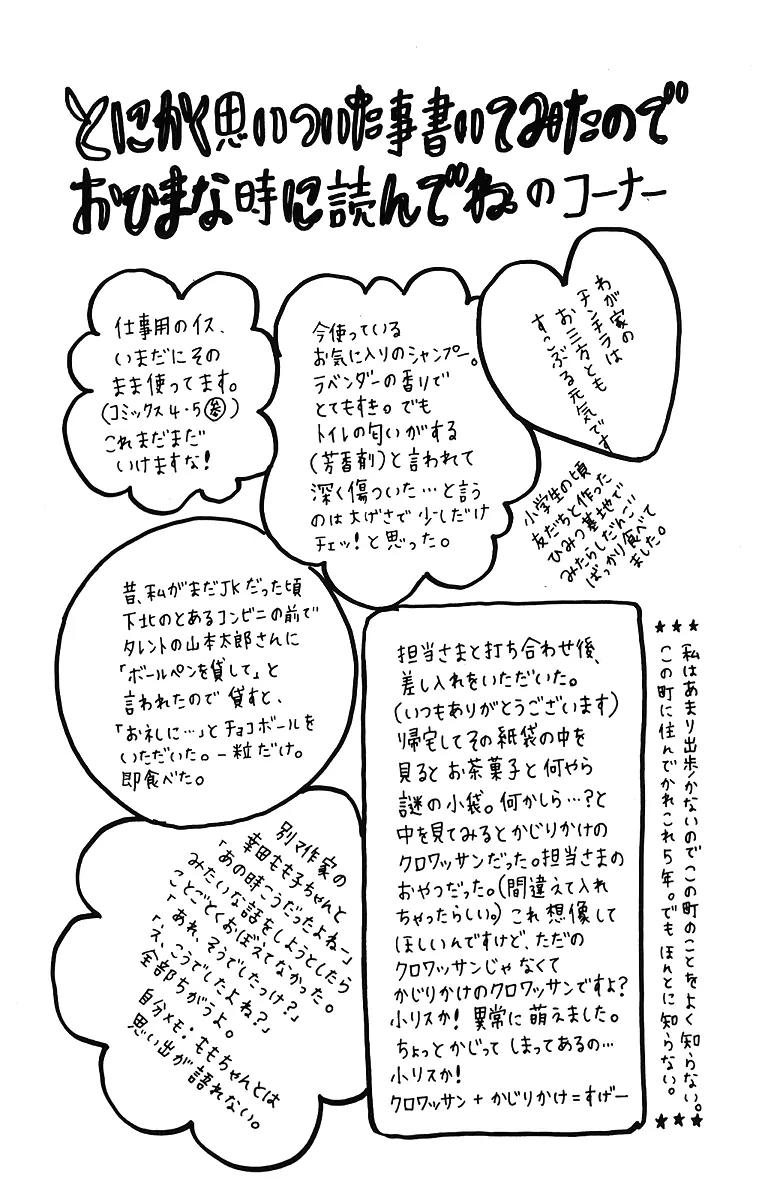 とにかく思いついた事書いてみたので
おひまな時に読んでね。のコーナー
仕事用のイス、
いまだにその
まま使ってます。
(コミックス4・5参)
これまだまだ
いけますな!
今使っている
お気に入りのシャンプー。
ラベンダーの香りで
とてもすき。でも
トイレの匂いがする
(芳香剤)と言われて
深く傷ついた…と言う
のは大げさで少しだけ
チェッ!と思った。
わが家の
チンチラは
お三方とも
すっぷる元気です
小学生の頃
友だちと作った
ひみつ基地で
みたらしだんご
ばっかり食べて
ました。
昔、私がまだJKだった頃
下北のとあるコンビニの前で
タレントの山本太郎さんに
「ボールペンを貸して」と
言われたので貸すと、
「お礼に…」とチョコボールを
いただいた。一粒だけ。
即食べた。
担当さまと打ち合わせ後、
差し入れをいただいた。
(いつもありがとうございます)
帰宅してその紙袋の中を
見るとお茶菓子と何やら
謎の小袋。何かしら…?と
中を見てみるとかじりかけの
クロワッサンだった。担当さまの
おやつだった。(間違えて入れ
ちゃったらしい。)これ想像して
ほしいんですけど、ただの
クロワッサンじゃなくて
かじりかけのクロワッサンですよ?
小リスか!異常に萌えました。
ちょっとかじってしまってあるの…
小リスか!
クロワッサン+かじりかけ=すげー
★★★
私はあまり出歩かないのでこの町のことをよく知らない。
この町に住んでかれこれ5年。でもほんとに知らない。
★★★
別マ作家の
幸田もも子ちゃんと
「あの時こうだったよねー」
みたいな話をしようとしたら
ことごとくおぼえてなかった。
「あれ、そうでしたっけ?」
「え、こうでしたよね?」
全部ちがうよ。
自分メモ・ももちゃんとは
思い出が語れない。